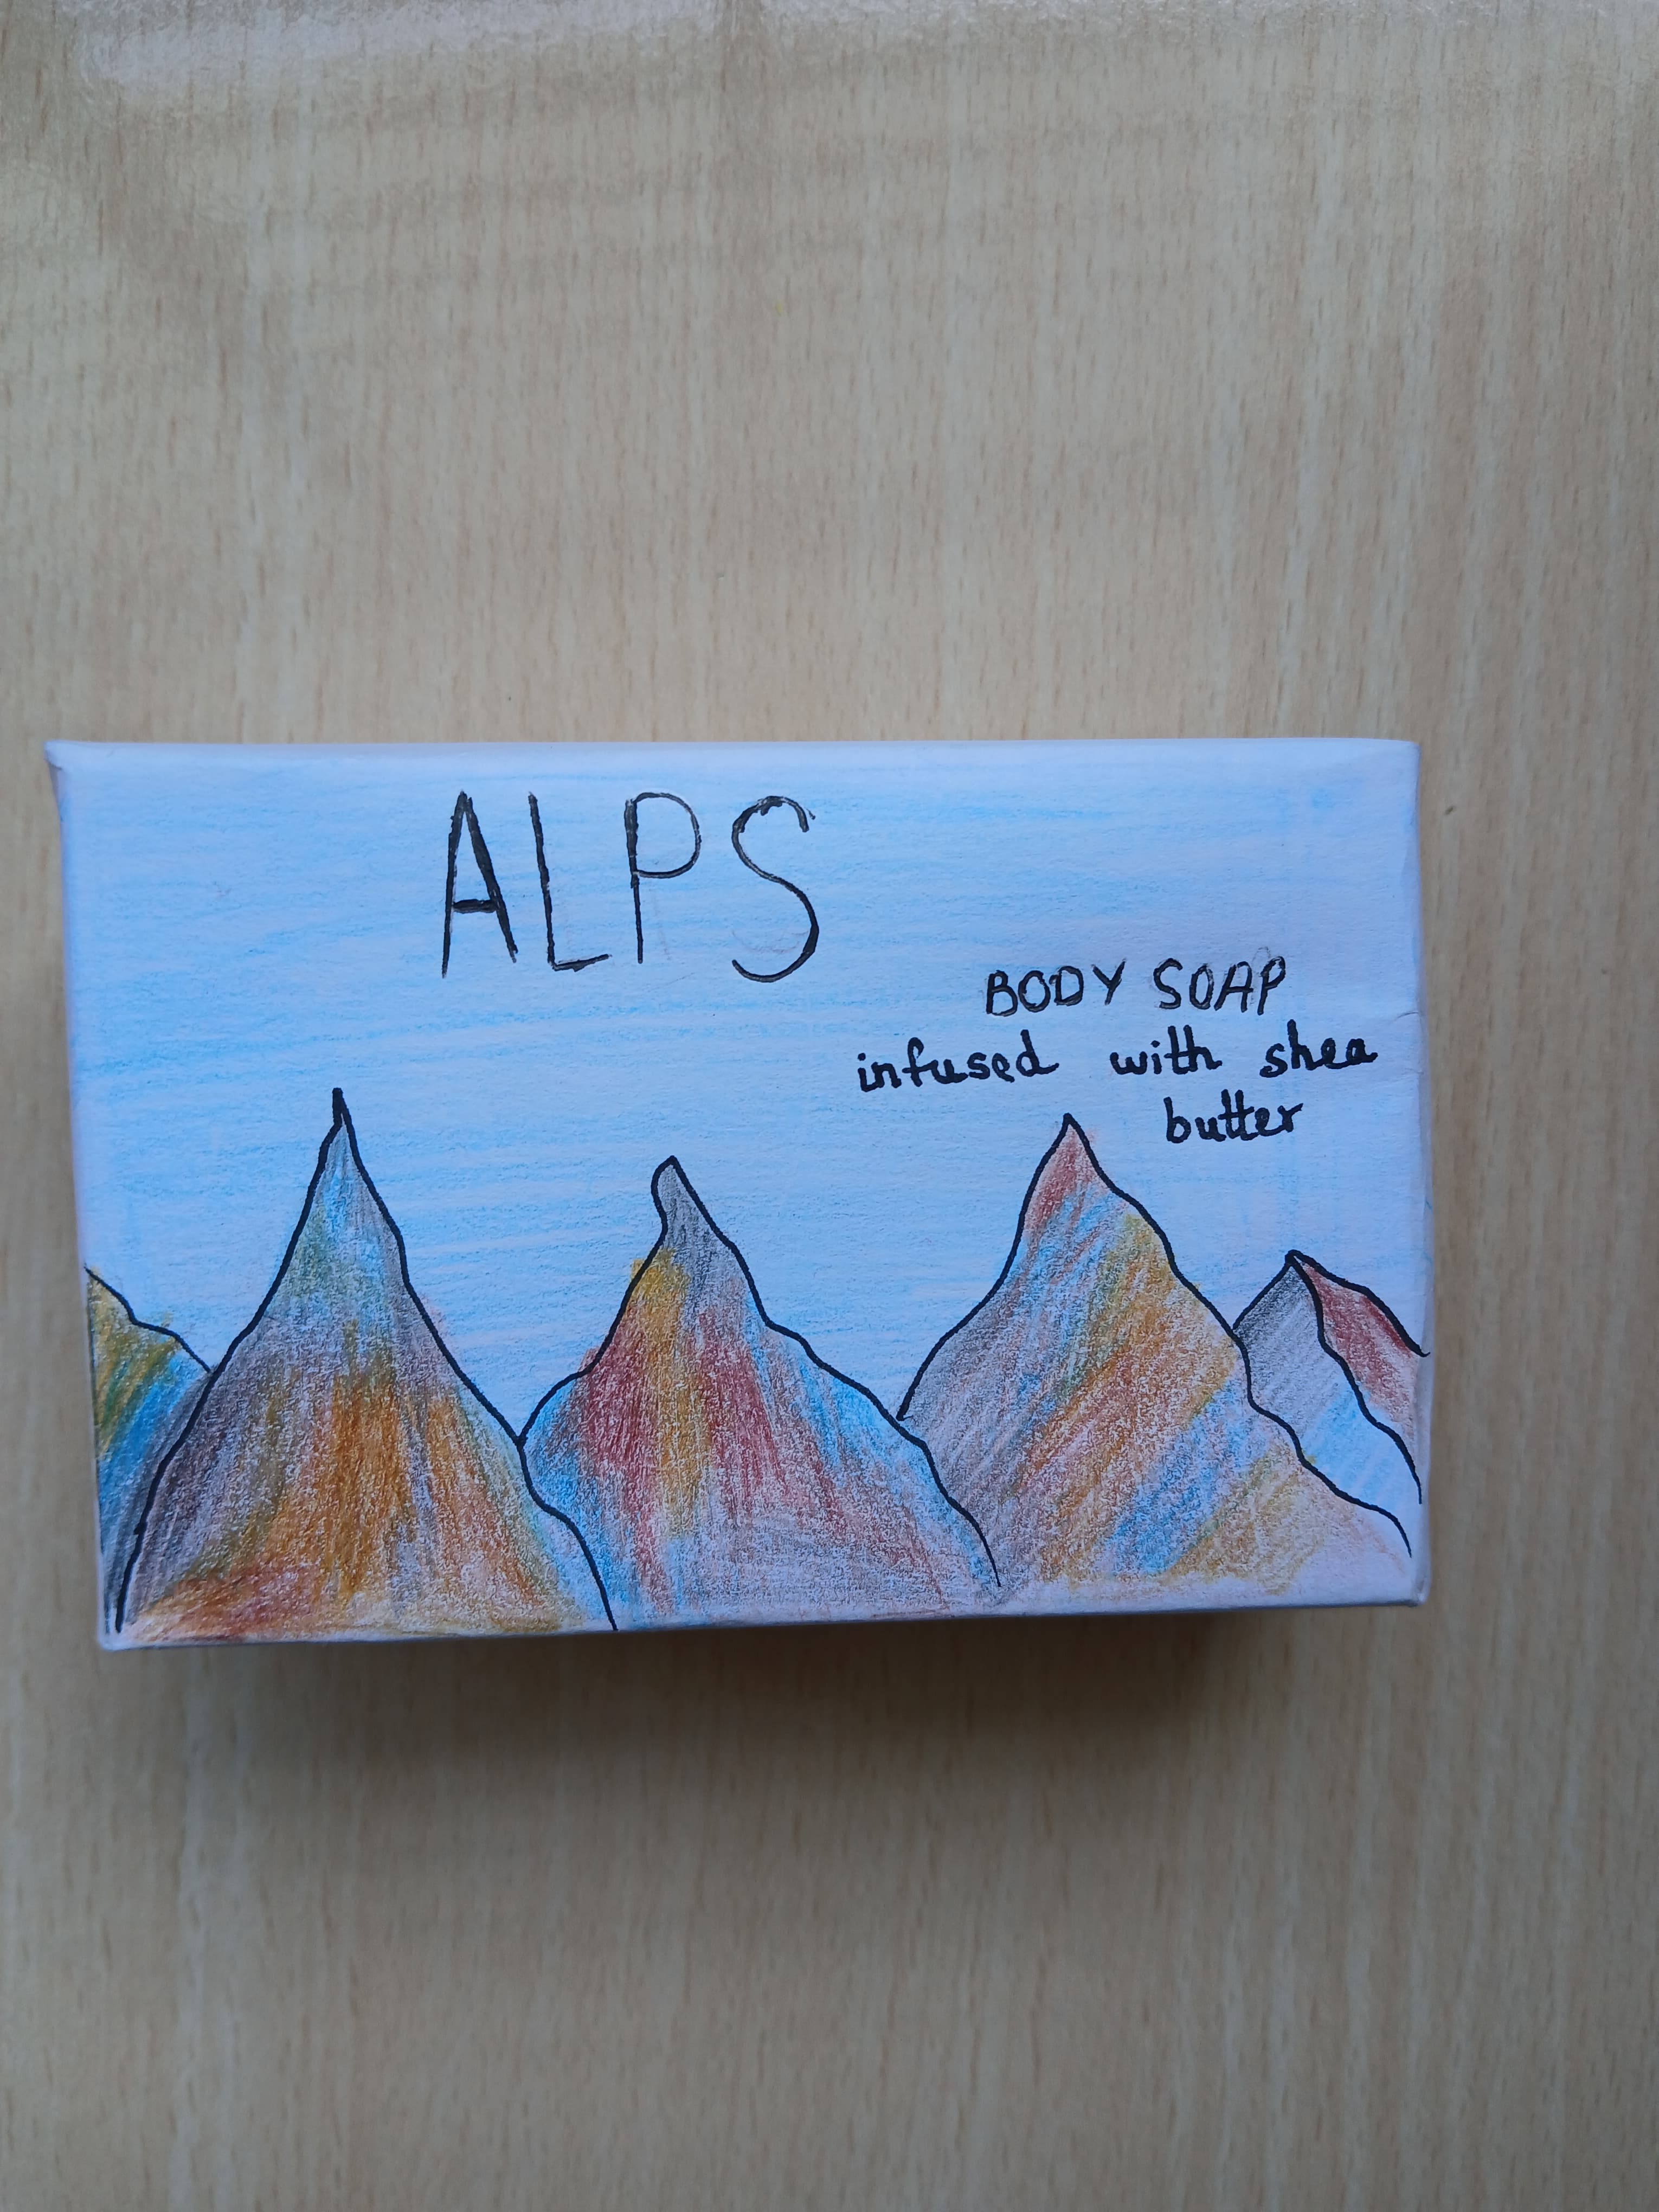 ALPS
BODY SOAP
infused with shea
butter